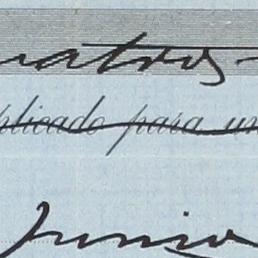 uatros
plicado para un
Junio